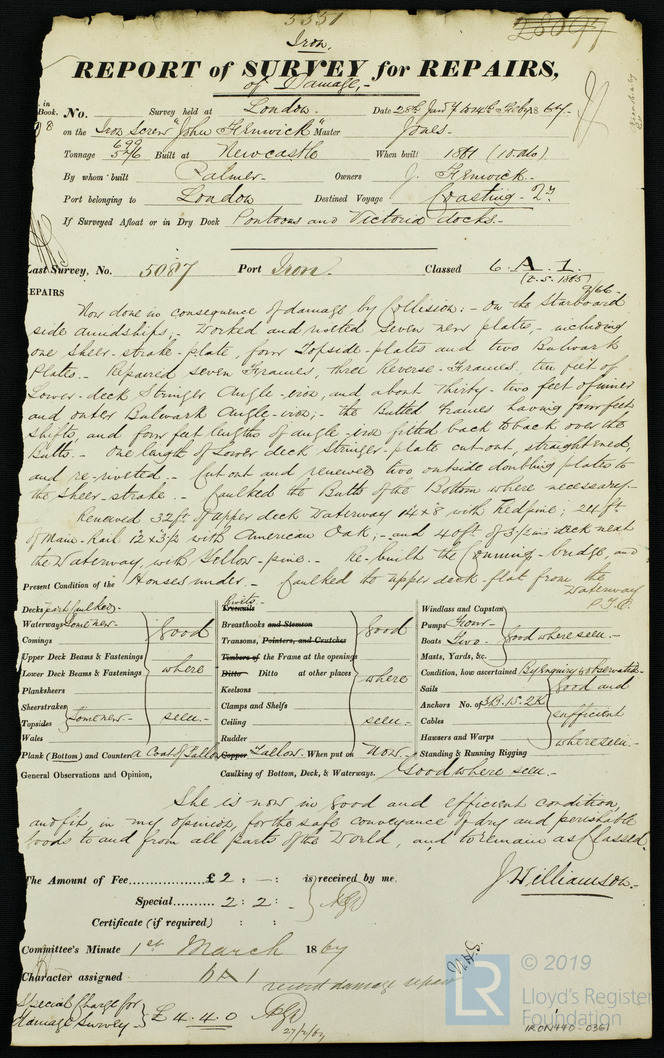 5551
Iron.
REPORT of SURVEY for REPAIRS,
of Damage,-
in
Book. No. Survey held at London. Date 28th Jany to 14th Feby 1867.
98 on the Iron Screw "John Fenwick" Master Jones-
Tonnage 699 546 Built at Newcastle When built 1861 (10.mo)
By whom built Palmer- Owners J. Fenwick-
Port belonging to London Destined Voyage Coasting-
If Surveyed Afloat or in Dry Dock Pontoons and Victoria docks.-
Last Survey, No. 5087 Port Iron. Classed 6. A. 1.
(2.5.1865)
2/66-
REPAIRS
Now done in consequence of damage by Collision:- On the Starboard
side amidships,- Worked and riveted seven new plates,- including
one Sheer-strake-plate, four Topside-plates and two Bulwark
Plates.- Repaired seven Frames, three Reverse-Frames, ten feet of
Lower-deck Stringer Angle-iron, and about thirty-two feet of inner
and outer Bulwark Angle-iron;- the Butted Frames having four feet
shifts, and four feet lengths of angle-iron fitted back to back over the
Butts.- One length of Lower deck Stringer-plate cut out, straightened,
and re-riveted.- Cut out and renewed two outside doubling plates to
the Sheer-strake.- Caulked the Butts of the Bottom where necessary-
Renewed 32 ft of upper deck Waterway 14 x 8 with Redpine; 24 ft
of Main-Rail 12 x 3½ with American Oak;- and 40 ft of 3½ ins deck next
the Waterway, with Yellow-pine.- Re-built the Conning-bridge, and
Houses under.- Caulked the upper deck-flat from the
Waterway
P.T.O.
Present Condition of the
Decks part caulked.-
Waterways some new-
Comings
Upper Deck Beams & Fastenings
Lower Deck Beams & Fastenings
Planksheers
Sheerstrakes
Topsides some new-
Wales
good
where
seen.-
Plank (Bottom) and Counter a Coat of Tallow
Rivets-
Treenails
Breasthooks and Stemson
Transoms, Pointers, and Crutches
Timbers of the Frame at the openings
Ditto Ditto at other places
Keelsons
Clamps and Shelfs
Ceiling
Rudder
good
where
seen.-
Copper Tallow. When put on Now.-
Windlass and Capstan
Pumps Four-
Boats Two.-
Masts, Yards, &c.
good where seen.-
Condition, how ascertained By enquiry & observation-
Sails
Anchors No. of 3B.1S.2K
Cables
Hawsers and Warps
Standing & Running Rigging
good and
sufficient
where seen.-
General Observations and Opinion, Caulking of Bottom, Deck, & Waterways. Good where seen.-
She is now in good and efficient condition,
and fit, in my opinion, for the safe conveyance of dry and perishable
goods to and from all parts of the World, and to remain as Classed.
The Amount of Fee............... £ 2 : - : is received by me,
Special........... 2 : 2 : -
Certificate (if required) : :
J Williamson-
Committee's Minute 1st March 1867
Character assigned 6 A 1
record damage repair
Special Charge for
damage Survey- £ 4.4.0
27/2/67
LR © 2019
Lloyd's Register
Foundation
IRON440-0361